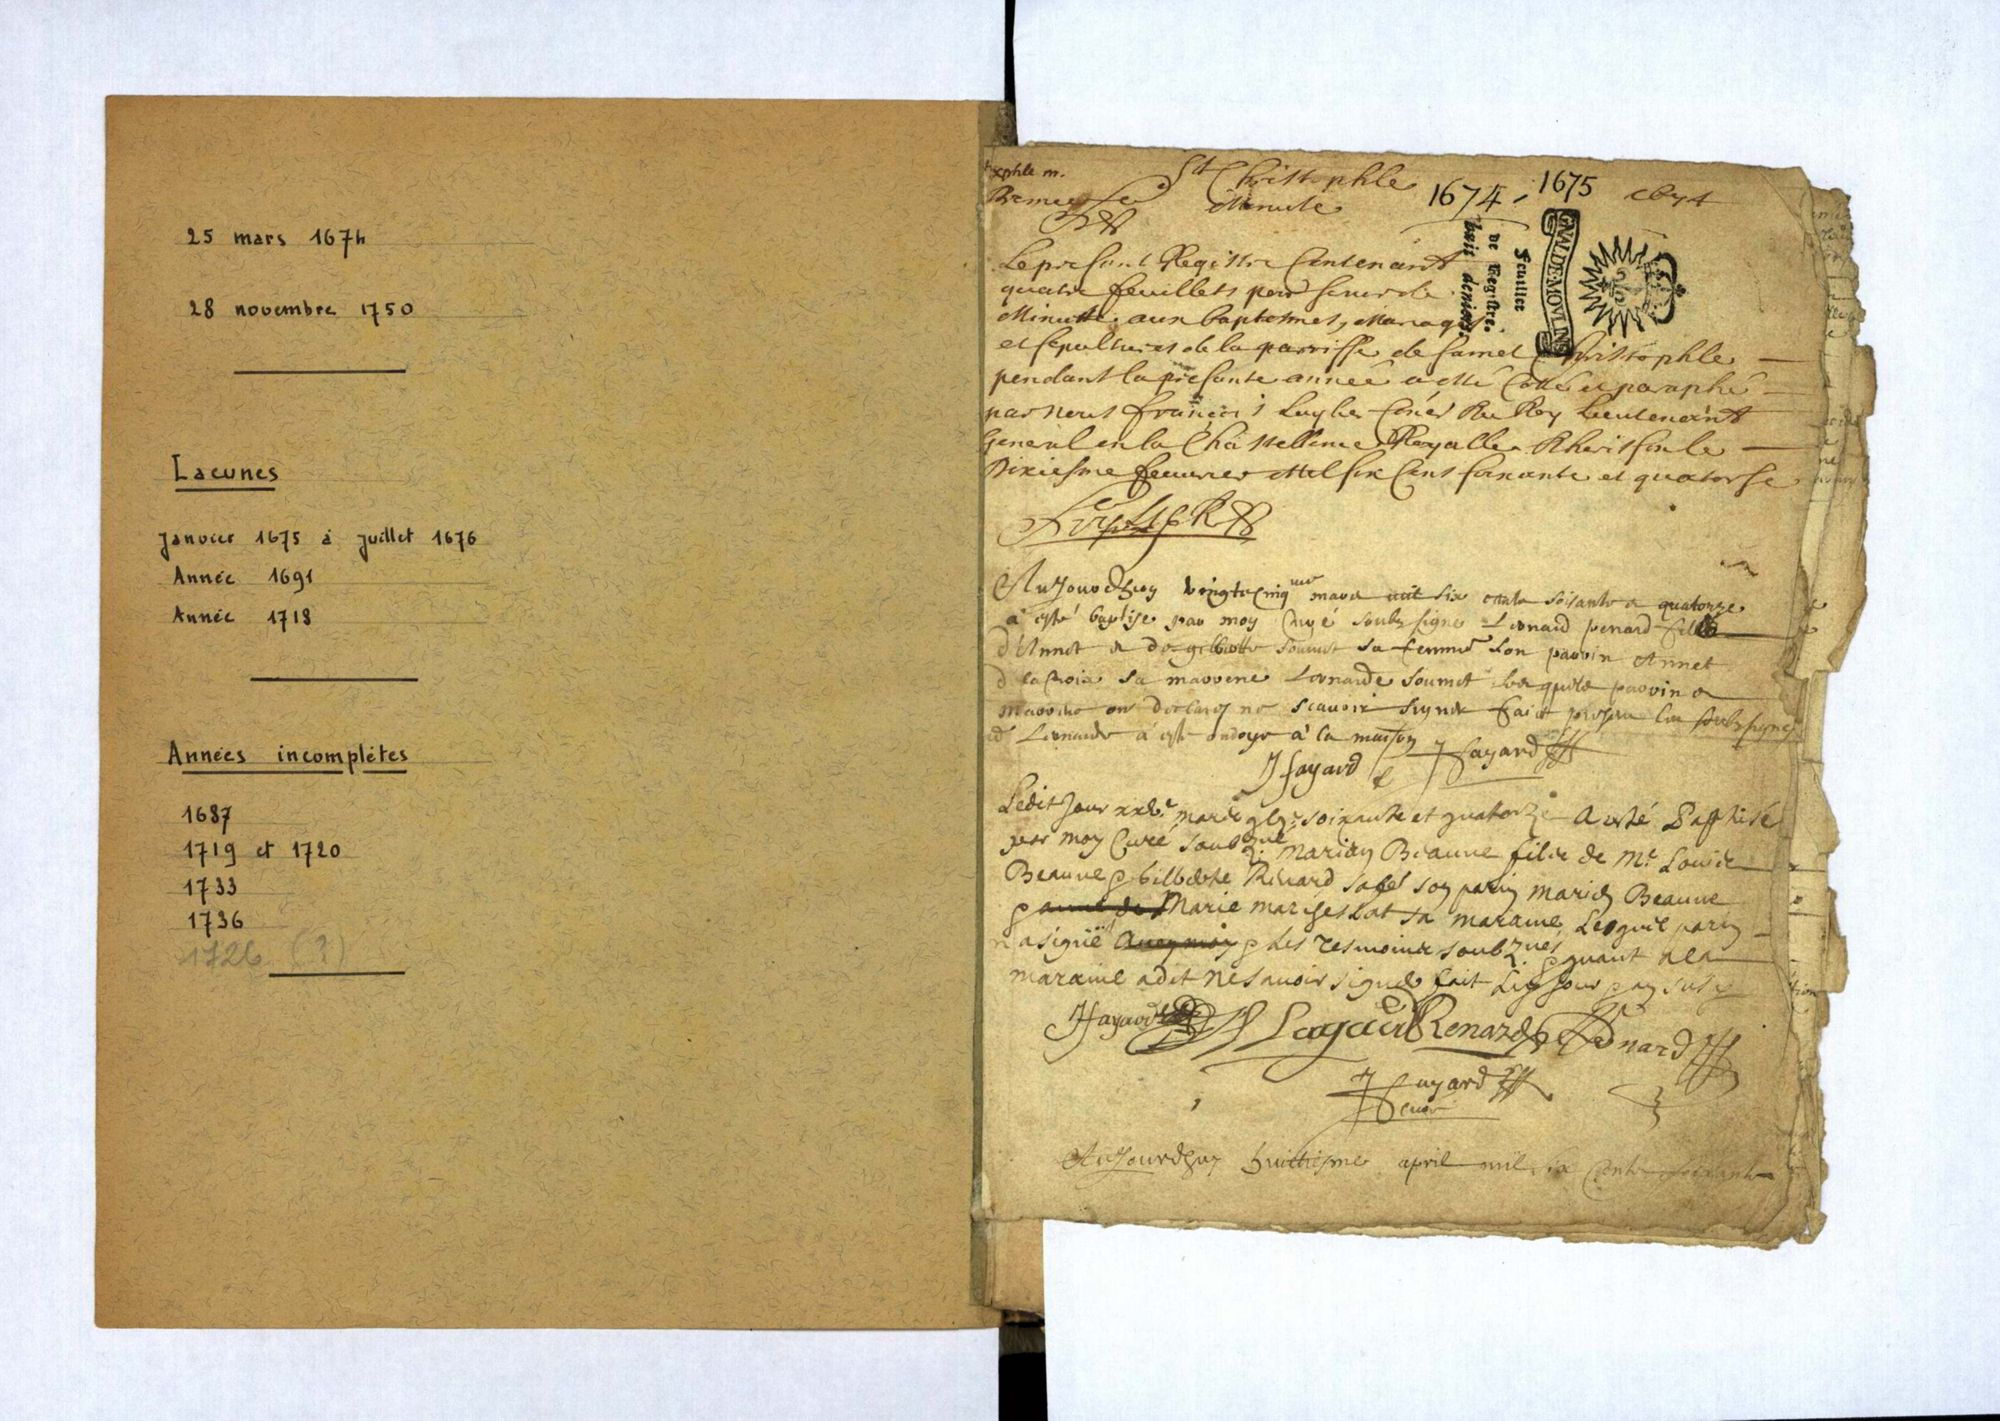 25 mars 1674
28 novembre 1750
Lacunes
Janvier 1675 à Juillet 1676
Année 1691
Année 1718
Années incomplètes
1687
1719 et 1720
1733
1736
1726 (?)
xphle m.
St Christophle
Minute
1674 - 1675
1674
GNAL.DE.MOVLINS
Feuillet
de Regstre.
huit deniers.
Le present Registre Contenant
quatre feuillets pour servir de
Minutte aux baptesmes, Mariages
et sepultures de la parroisse de sainct Christophle
pendant la presente année a esté Cotté et paraphé
par nous françois Coner du Roy Lieutenant
General en la Chastellenie Royalle le
Dixiesme feuvrier Mil six Cens soixante et quatorse
Aujourdhuy vingt cinq mars mil six cents soisante & quatorze
à esté baptise par moy Curé soubsigné Leonard penard fils
d'Annet & de gilberte soumet sa femme son parin Annet
d lacroix sa marrene Leonarde soumet lesquels parrin &
marrine on declarez ne scavoir signer faict presan les soubsignes
Leonard à esté ondoye à la maison
J fayard J fayard
Ledit Jour mars soixante et quatorze A esté Baptisé
par moy Curé soubzné Marien Beaune filz de Me Louis
Beaune & Gilberte Renard sa fe son parin marien Beaune
& Marie sa maraine, Lesquel parin
n a signé & les tesmoins soubznes & quant a la
maraine a dit ne savoir signer fait Les jour & an susd
J fayard Renard Renard
J fayard
Curé
Aujourdhuy huictiesme april mil six Cents soixante